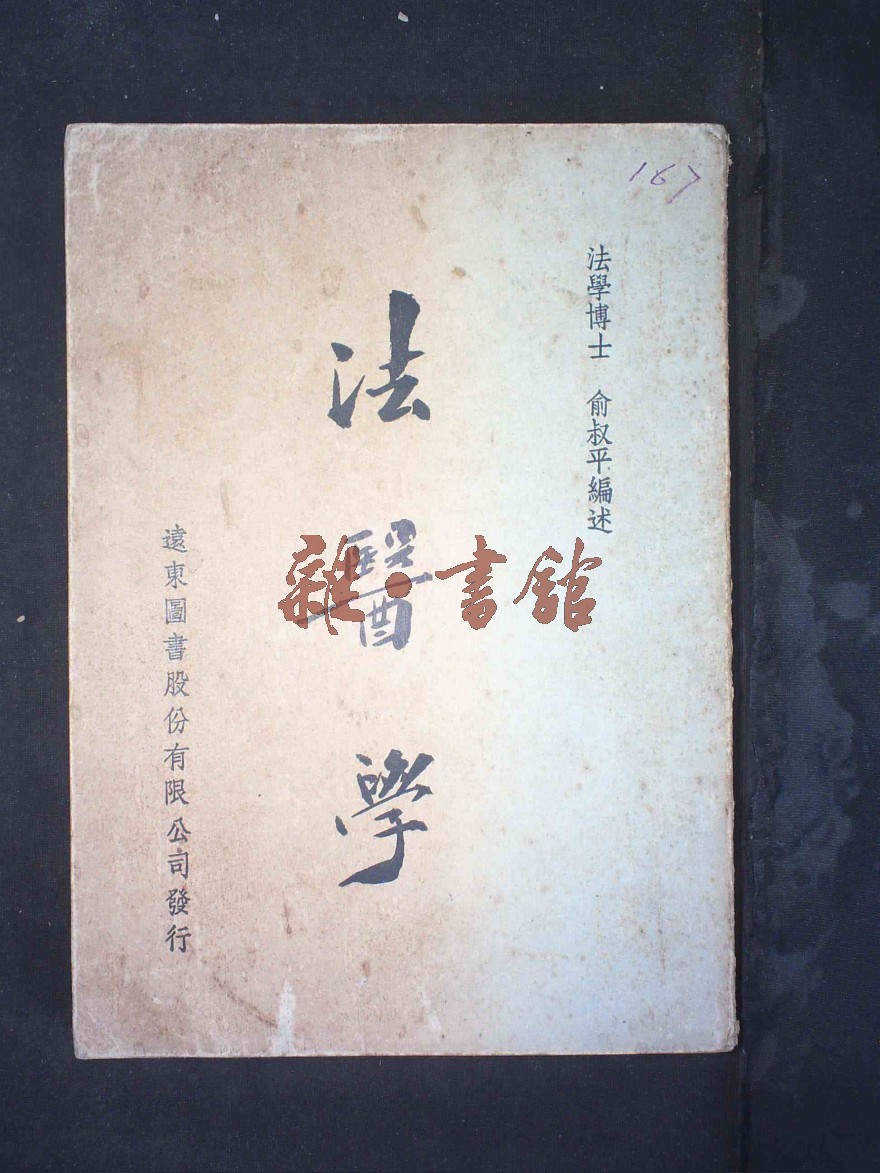 167
法學博士 俞叔平編述
法醫學
遠東圖書股份有限公司發行
雜·書館